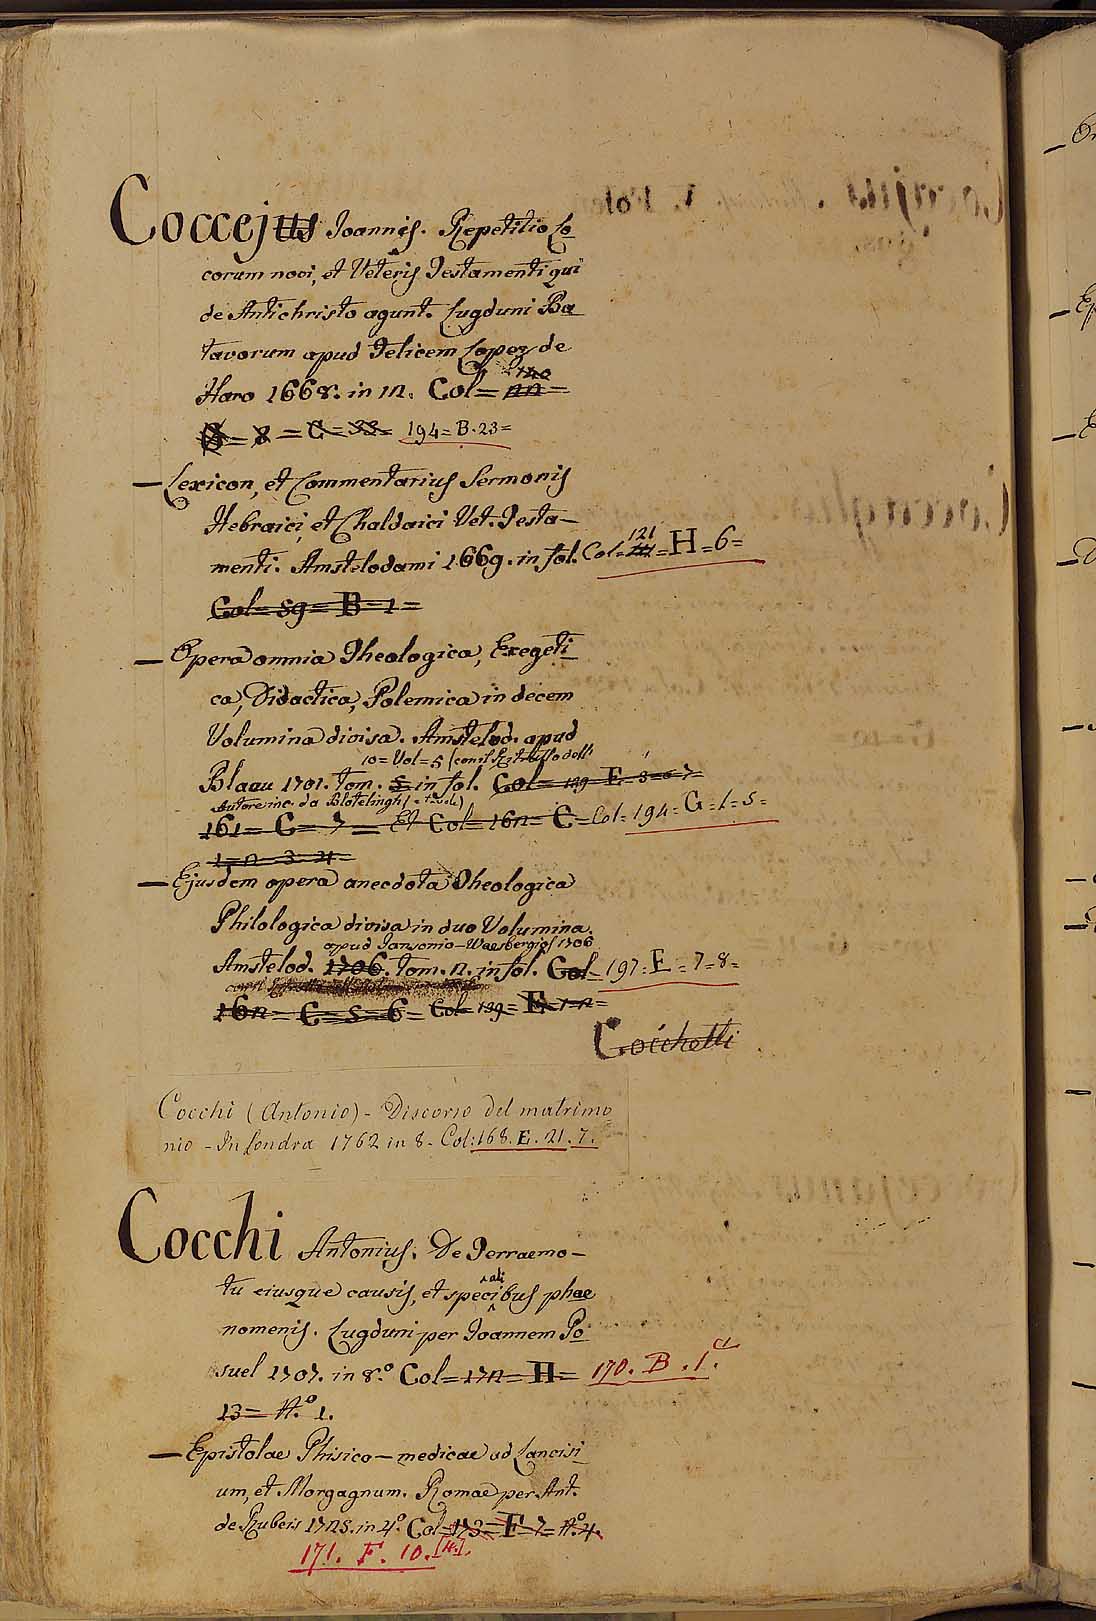 Coccejus Joannis. Repetitio Lo
corum novi, et Veteris Testamenti qui
de Antichristo agunt. Lugduni Ba
tavorum apud Felicem Lopez de
Haro 1668. in 12. Col=
C= 33= 194= B. 23=
— Lexicon, et Commentarius Sermonis
Hebraici, et Chaldaici Vet. Testa-
menti. Amstelodami 1669. in fol. Col= 121 = H = 6=
Col= 89= B= 1=
— Opera omnia Theologica, Exegeti
ca, Didactica, Polemica in decem
Volumina divisa. Amstelod. apud
10= Vol= 5
Blaau 1701. Tom. 8 in fol. Col= 139 E. 3=6=7=
Autore inc. da Blotelingh
161= C= 7= Et Col= 162= C= Col= 194= G= 1= 5=
1=2=3=21=
— Ejusdem opera anecdota Theologica
Philologica divisa in duo Volumina.
apud Jansonio-Waesbergios 1706
Amstelod. 1706. Tom. 2. in fol. Col= 197. E= 7=8=
162= C= 5= 6= Col= 139= E. 1=2=
Cocchetti
Cocchi (Antonio) - Discorso del matrimo
nio - In Londra 1762 in 8- Col: 168. E. 21. 7.
Cocchi Antonius. De Terraemo-
tu eiusque causis, et speci^ali^bus phae
nomenis. Lugduni per Joannem Po
suel 1707. in 8.° Col= 172= H= 170. B. 1.a
13= N.° 1.
— Epistolae Phisico-medicae ad Lancisi
um, et Morgagnum. Romae per Ant.
de Rubeis 1725. in 4.° Col= 173= F= 7= N.° 4.
171. F. 10. [4.]